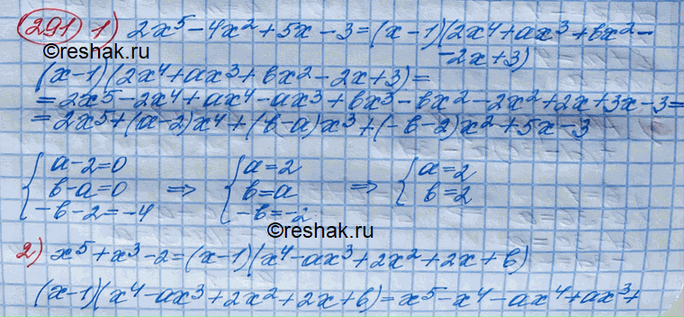 291 1) 2x⁵-4x²+5x-3=(x-1)(2x⁴+ax³+bx²-
-2x+3)
©reshak.ru
(x-1)(2x⁴+ax³+bx²-2x+3)=
=2x⁵-2x⁴+ax⁴-ax³+bx³-bx²-2x²+2x+3x-3=
=2x⁵+(a-2)x⁴+(b-a)x³+(-b-2)x²+5x-3
{a-2=0 ⇒ {a=2 ⇒ {a=2
b-a=0 b=a b=2
-b-2=-4 -b=-2
©reshak.ru
2) x⁵+x³-2=(x-1)(x⁴-ax³+2x²+2x+b)
(x-1)(x⁴-ax³+2x²+2x+b)=x⁵-x⁴-ax⁴+ax³+